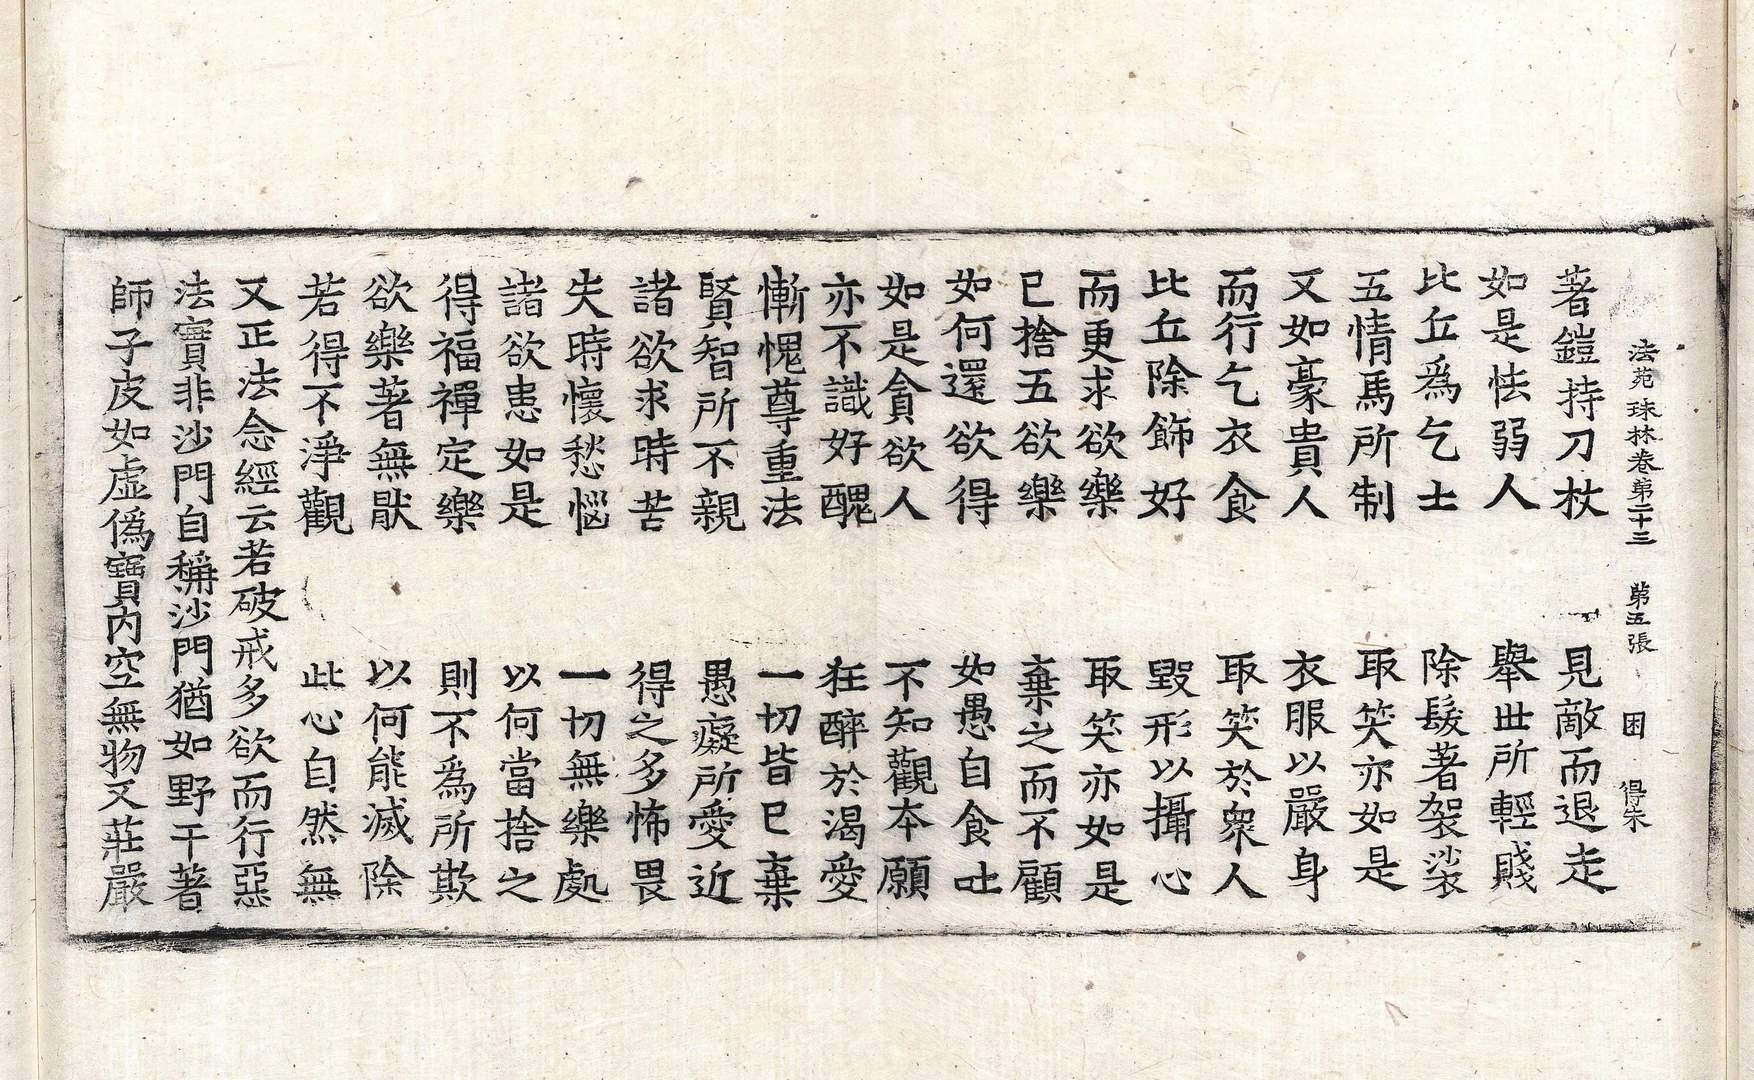 法苑珠林卷第二十三 第五張 困 得朩
著鎧持刀杖 見敵而退走
如是怯弱人 舉世所輕賤
比丘爲乞士 除髮著袈裟
五情馬所制 取笑亦如是
又如豪貴人 衣服以嚴身
而行乞衣食 取笑於衆人
比丘除飾好 毀形以攝心
而更求欲樂 取笑亦如是
已捨五欲樂 棄之而不顧
如何還欲得 如愚自食吐
如是貪欲人 不知觀本願
亦不識好醜 狂醉於渴愛
慚愧尊重法 一切皆已棄
賢智所不親 愚癡所愛近
諸欲求時苦 得之多怖畏
失時懷愁惱 一切無樂處
諸欲患如是 以何當捨之
得福禪定樂 則不為所欺
欲樂著無猒 以何能滅除
若得不淨觀 此心自然無
又正法念經云若破戒多欲而行惡
法實非沙門自稱沙門猶如野干著
師子皮如虛偽寶內空無物又莊嚴